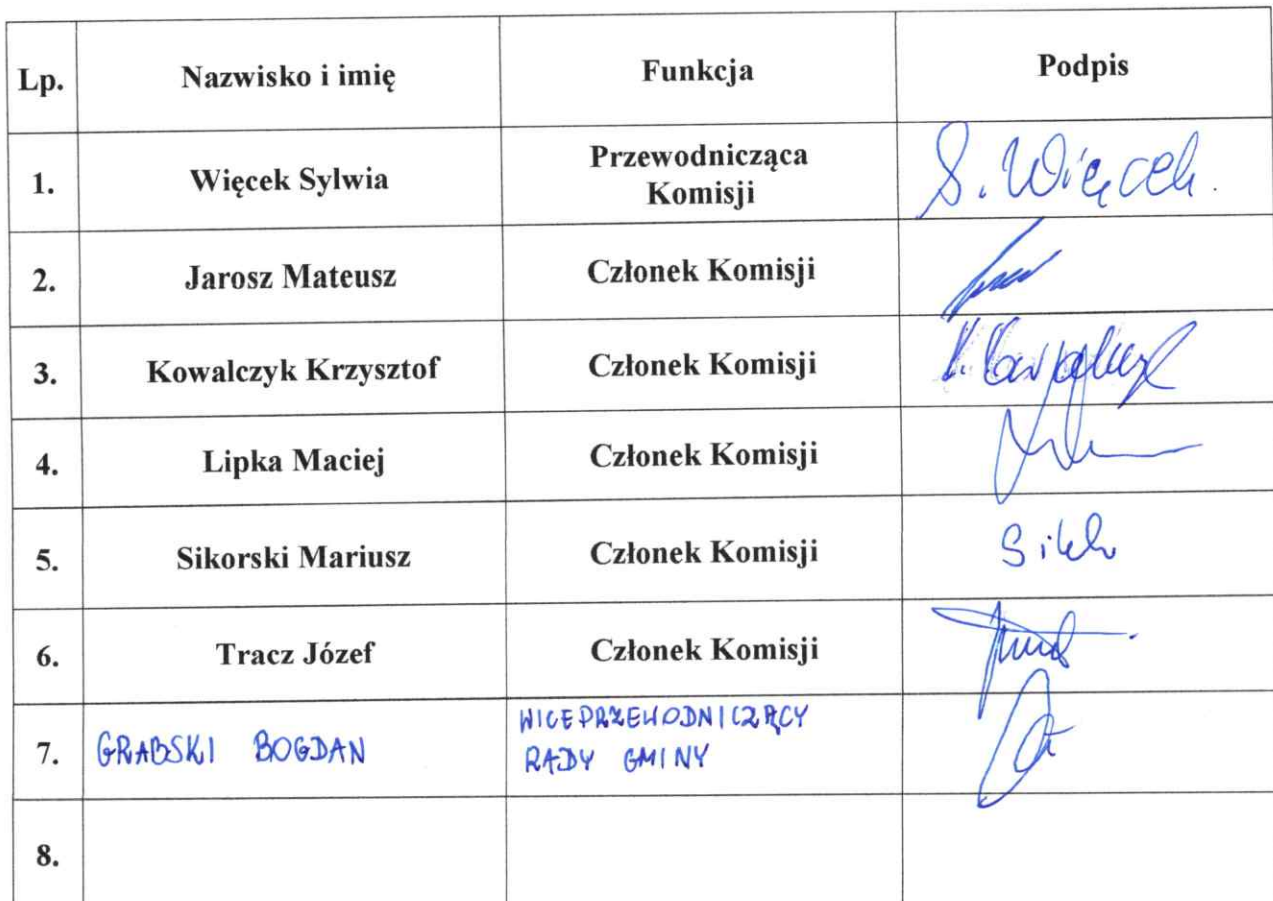 Lp. Nazwisko i imię Funkcja Podpis
1. Więcek Sylwia Przewodnicząca
Komisji S. Więcek
2. Jarosz Mateusz Członek Komisji
3. Kowalczyk Krzysztof Członek Komisji
4. Lipka Maciej Członek Komisji
5. Sikorski Mariusz Członek Komisji
6. Tracz Józef Członek Komisji
7. GRABSKI BOGDAN WICEPRZEWODNICZĄCY
RADY GMINY
8.